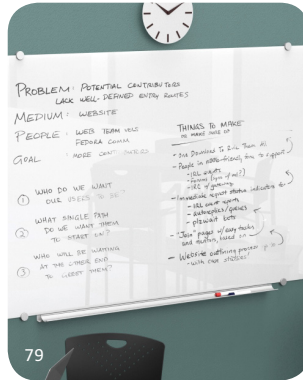 PROBLEM: POTENTIAL CONTRIBUTORS
LACK WELL-DEFINED ENTRY ROUTES
MEDIUM: WEBSITE
PEOPLE: WEB TEAM VOLS
FEDORA COMM
GOAL MORE
① WHO DO WE WANT
OUR USERS TO BE?
② WHAT SINGLE PATH
DO WE WANT THEM
TO START ON?
③ WHO WILL BE WAITING
AT THE OTHER END
TO GREET THEM?
THINGS TO MAKE
- People in
- IRL events
- Immediate report status indicators for
- IRL events
- autoreplies/queues
- bots
- "Join" pages w/ easy tasks
and mentors, based on
- Website outlining process
- with case studies!
79